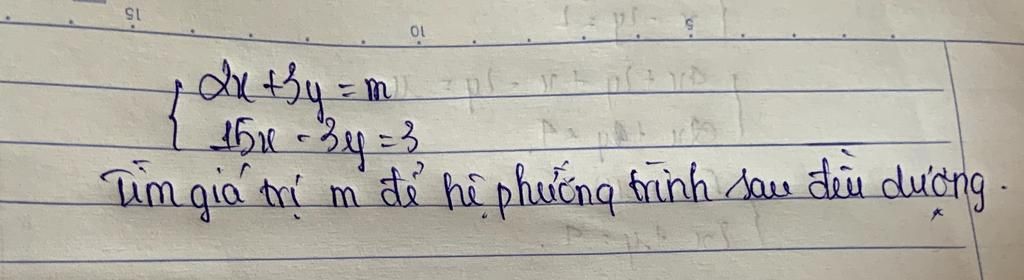 15 10 5
2x + 3y = m
15x - 3y = 3
Tìm giá trị m để hệ phương trình sau đều dương.